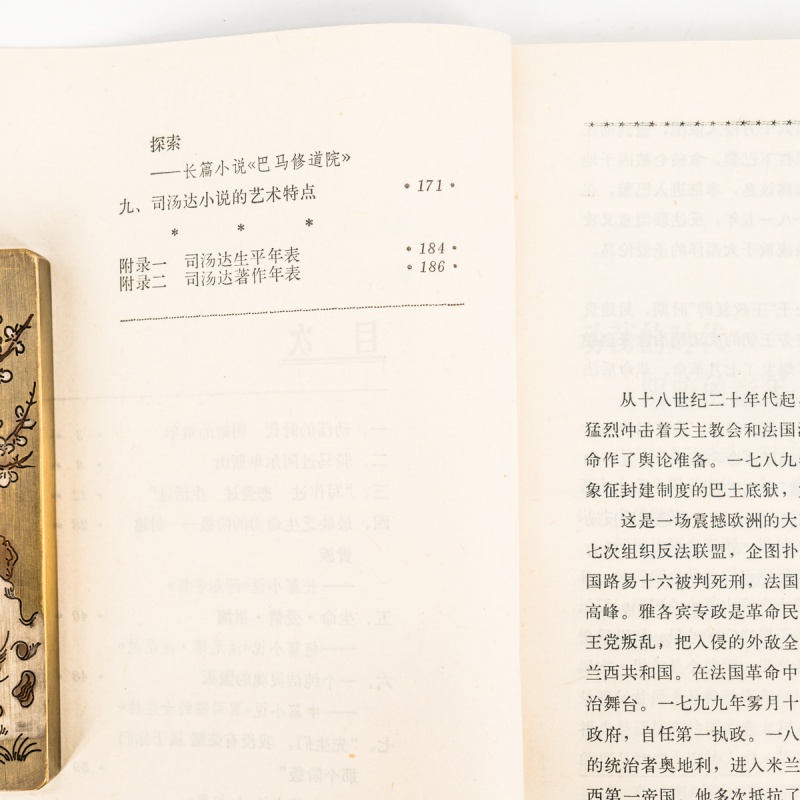 探索
——长篇小说《巴马修道院》
九、司汤达小说的艺术特点 •171•
* * *
附录一 司汤达生平年表 •184•
附录二 司汤达著作年表 •186•
从十八世纪二十年代起
猛烈冲击着天主教会和法国
命作了舆论准备。一七八九
象征封建制度的巴士底狱，
这是一场震撼欧洲的大
七次组织反法联盟，企图扑
国路易十六被判死刑，法国
高峰。雅各宾专政是革命民
王党叛乱，把入侵的外敌全
兰西共和国。在法国革命中
治舞台。一七九九年雾月十
政府，自任第一执政。一八
的统治者奥地利，进入米兰
西第一帝国。他多次抵抗了